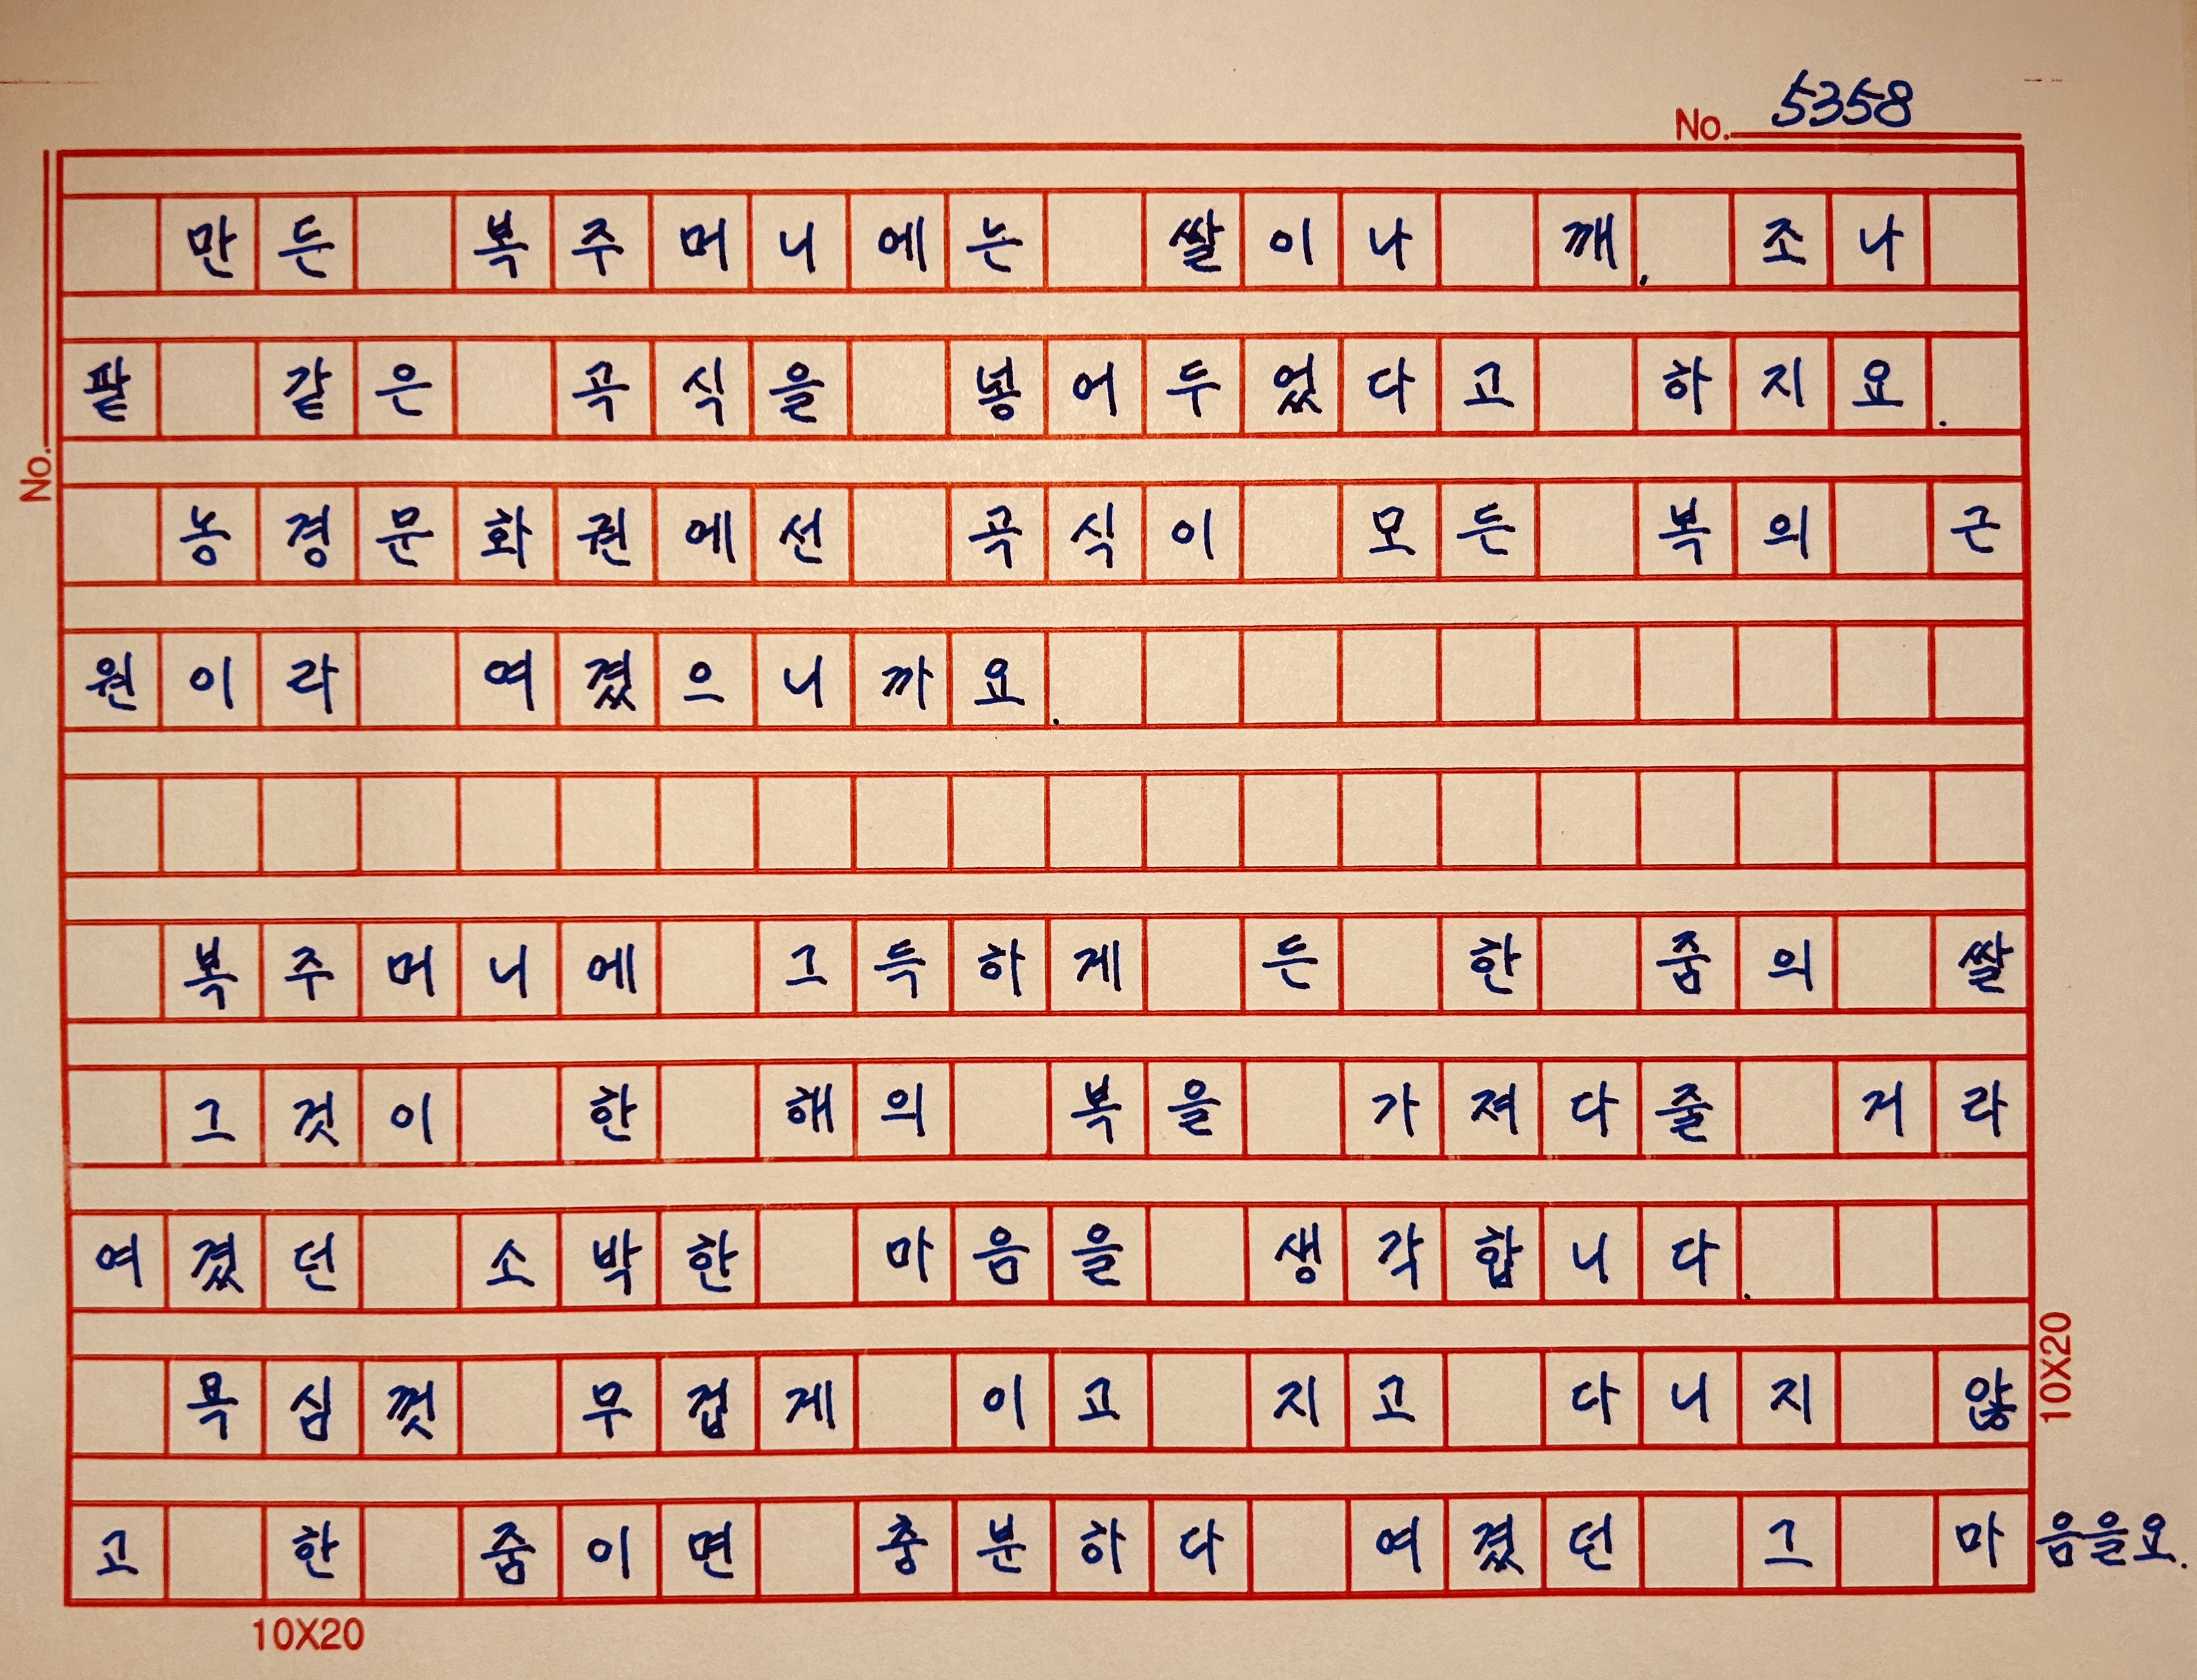 No. 5358
만든 복주머니에는 쌀이나 깨, 조나
팥 같은 곡식을 넣어두었다고 하지요.
No.
농경문화권에선 곡식이 모든 복의 근
원이라 여겼으니까요.
복주머니에 그득하게 든 한 줌의 쌀
그것이 한 해의 복을 가져다줄 거라
여겼던 소박한 마음을 생각합니다.
욕심껏 무겁게 이고 지고 다니지 않
10X20
고 한 줌이면 충분하다 여겼던 그 마음을요.
10X20